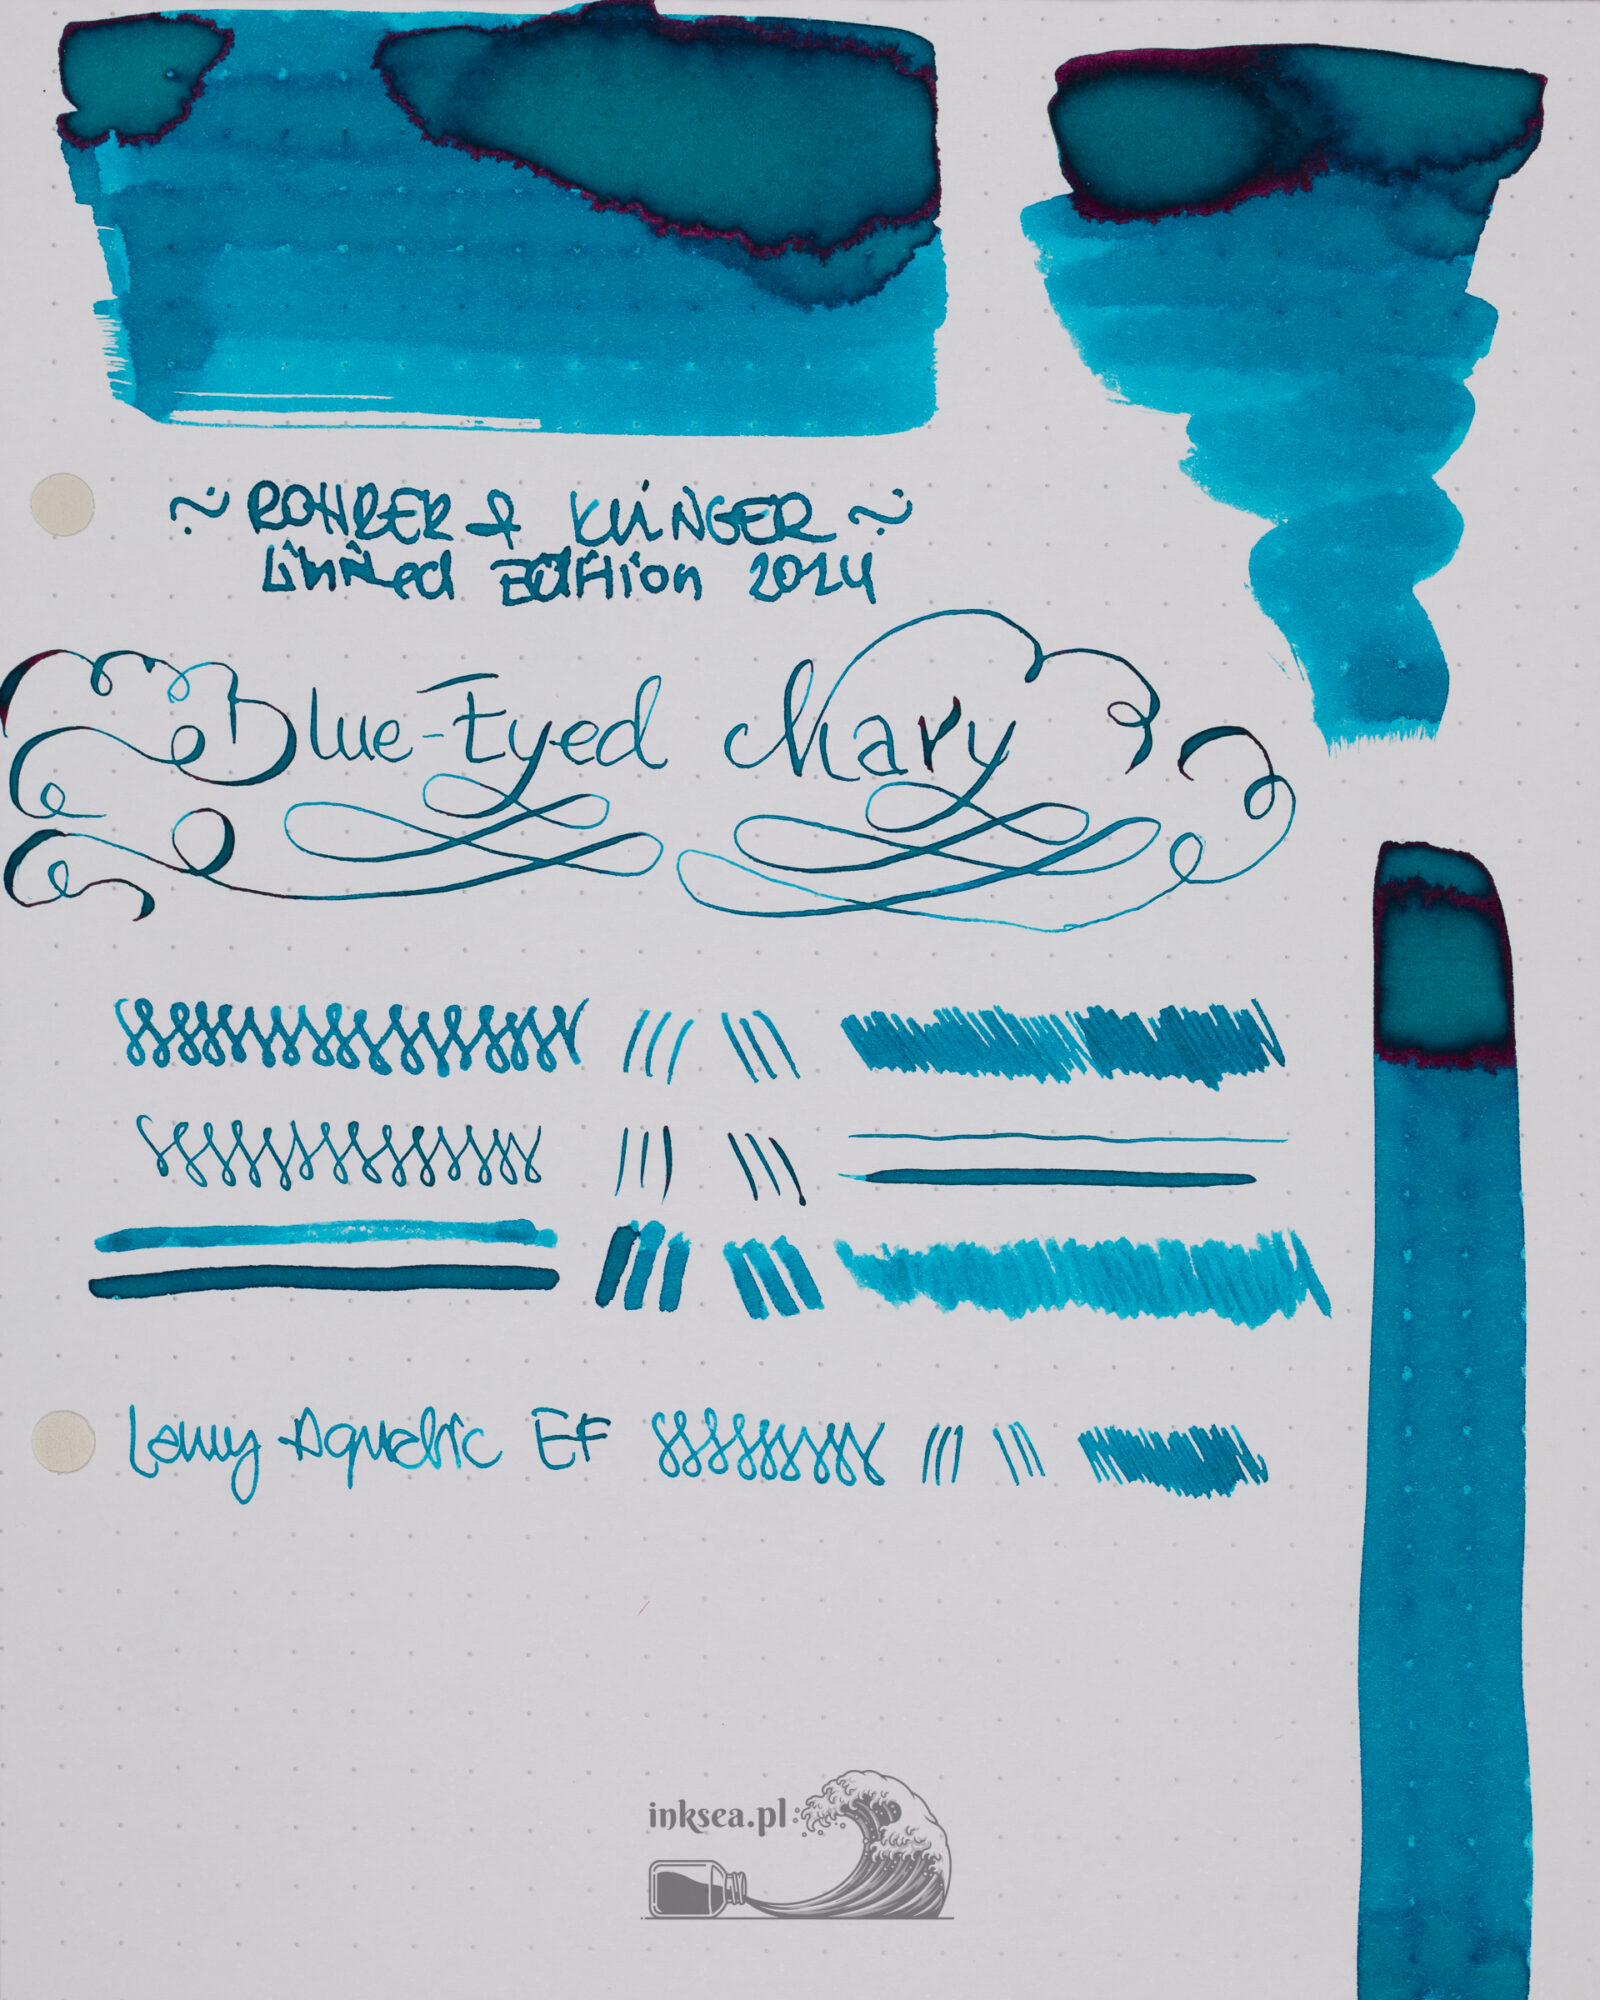 ~ ROHRER & KLINGER ~
Limited Edition 2024
Blue-Eyed Mary
Lamy Aquatic EF
inksea.pl